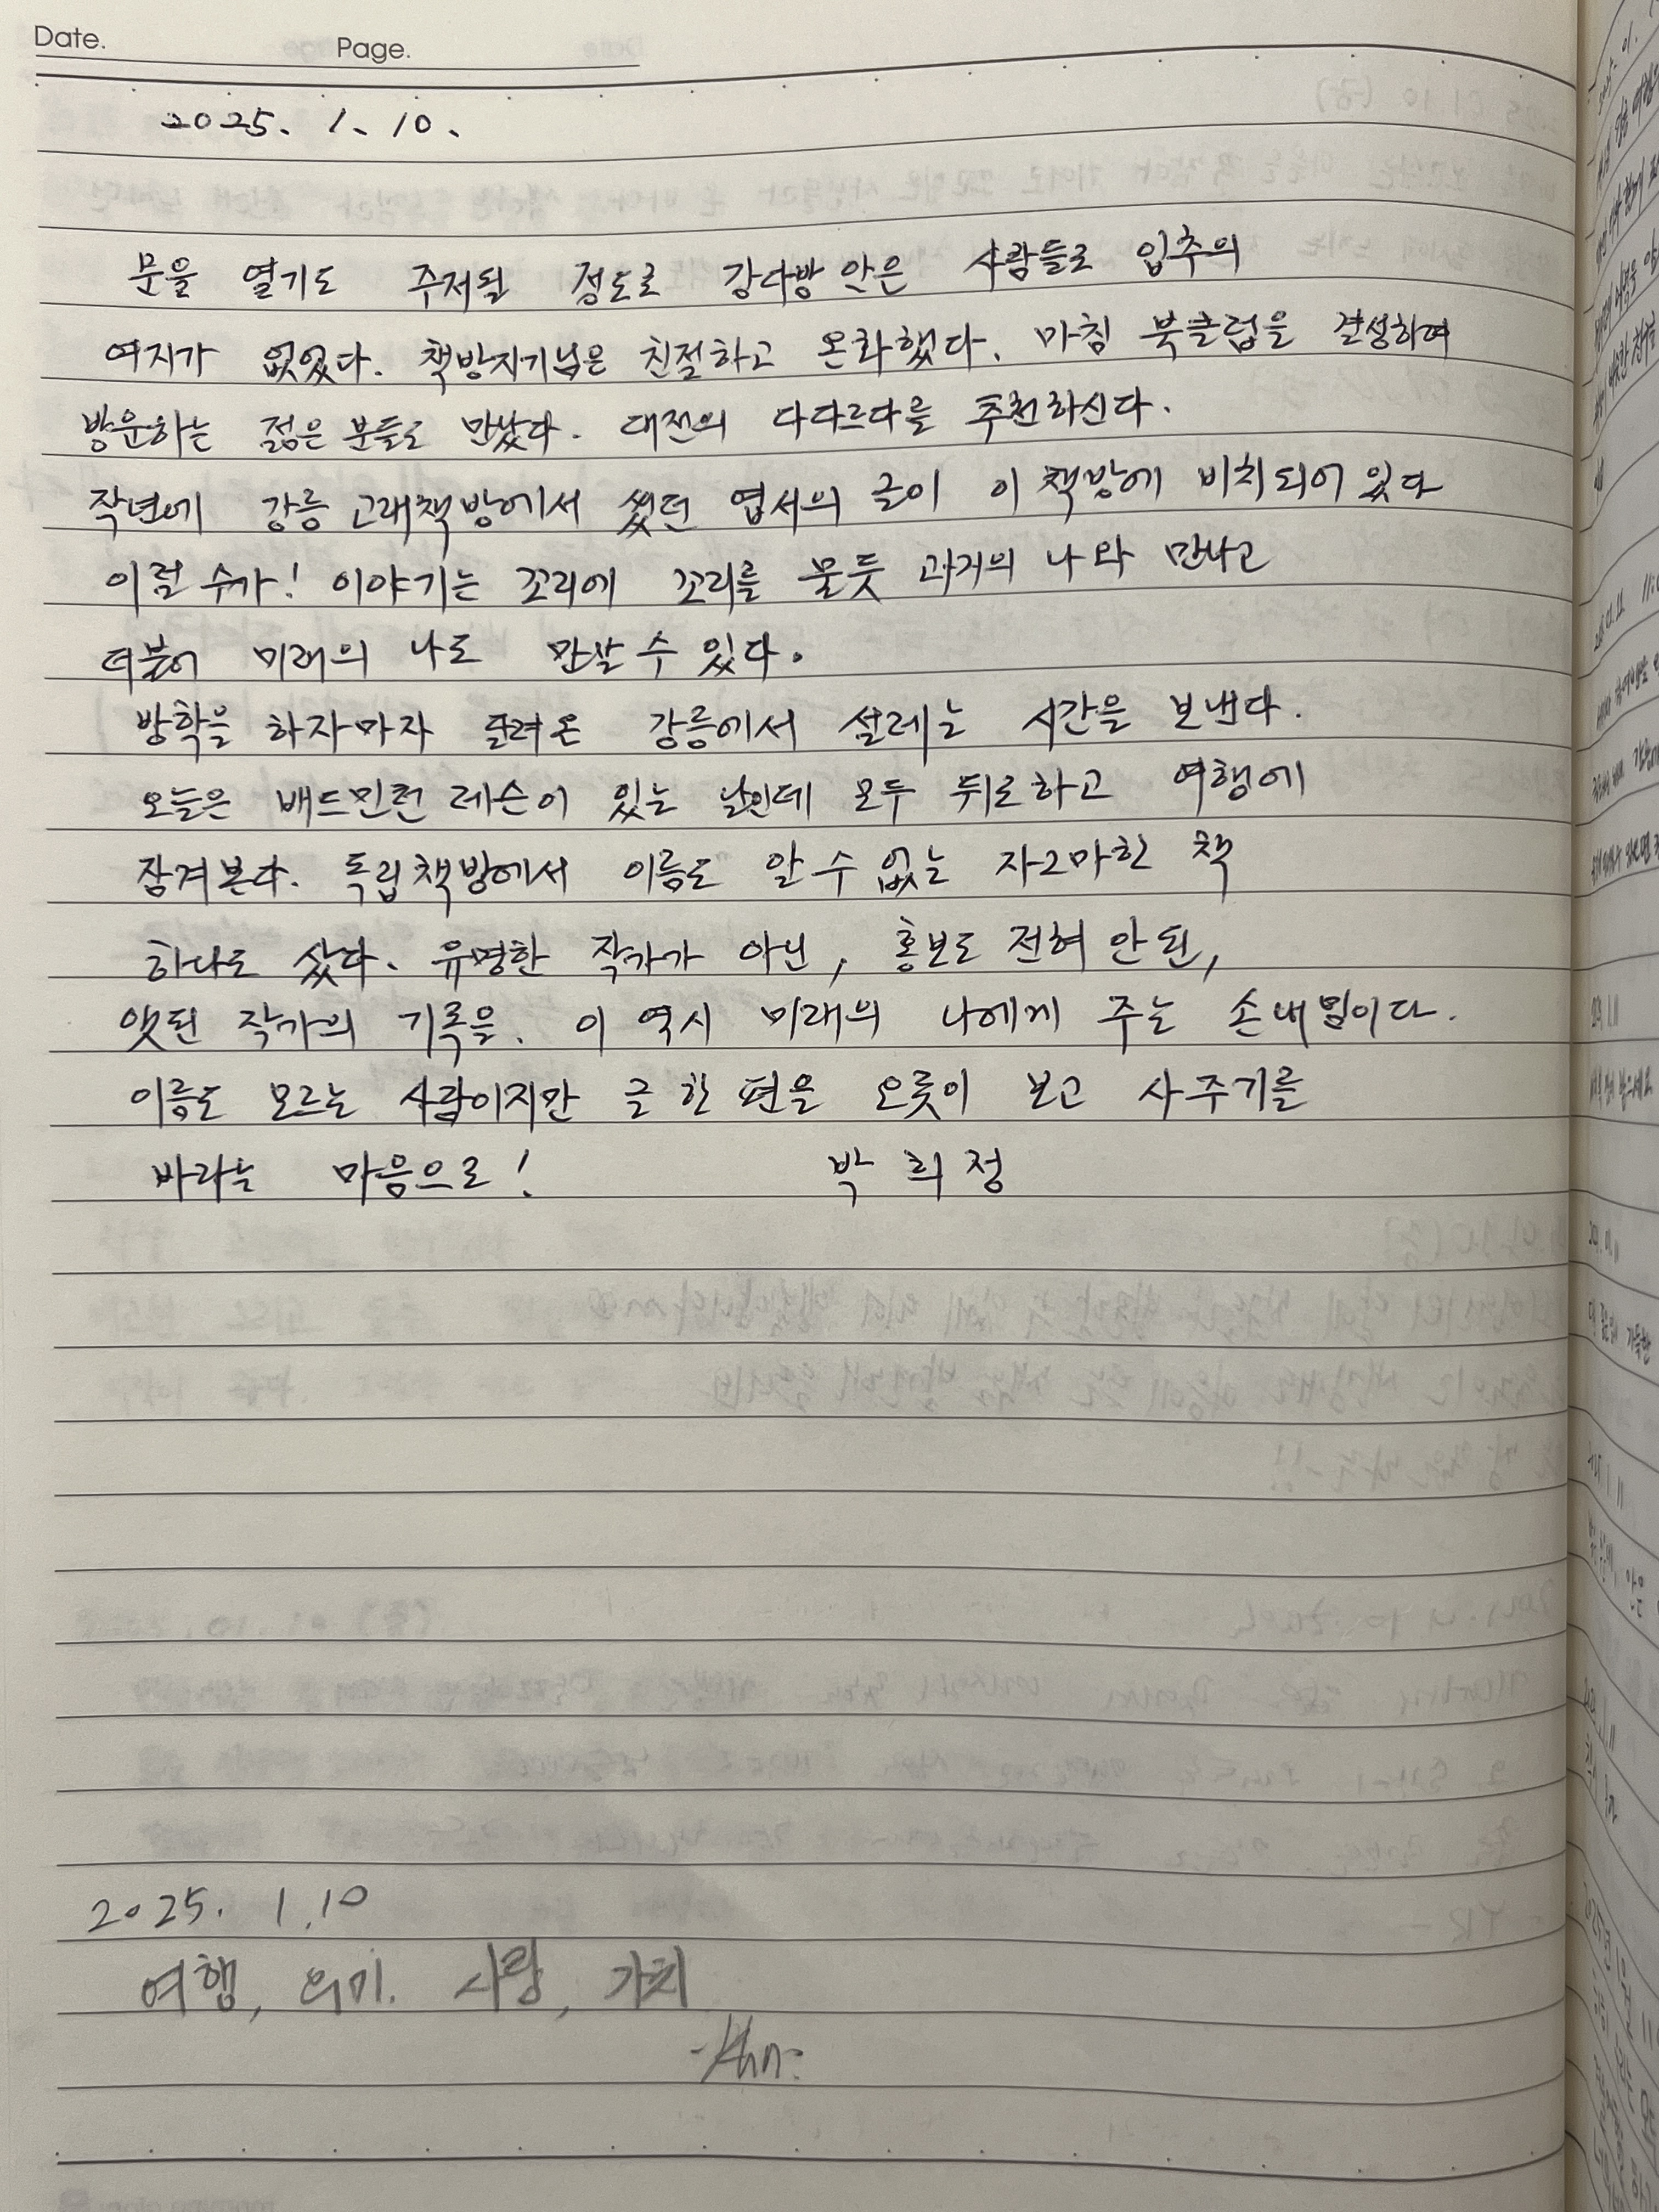 Date.
Page.
2025. 1. 10.
문을 열기도 주저될 정도로 강다방 안은 사람들로 입추의
여지가 없었다. 책방지기님은 친절하고 온화했다. 마침 북클럽을 결성하여
방문하는 젊은 분들도 만났다. 대전의 다다르다를 추천하신다.
작년에 강릉 고래책방에서 썼던 엽서의 글이 이 책방에 비치되어 있다
이럴 수가! 이야기는 꼬리에 꼬리를 물듯 과거의 나와 만나고
더불어 미래의 나도 만날 수 있다.
방학을 하자마자 달려온 강릉에서 설레는 시간을 보낸다.
오늘은 배드민턴 레슨이 있는 날인데 모두 뒤로하고 여행에
잠겨본다. 독립책방에서 이름도 알 수 없는 자그마한 책
하나도 샀다. 유명한 작가가 아닌, 홍보도 전혀 안 된,
앳된 작가의 기록을. 이 역시 미래의 나에게 주는 손내밂이다.
이름도 모르는 사람이지만 글 한 편을 오롯이 보고 사주기를
바라는 마음으로! 박희정
2025. 1.10
여행, 의미. 사랑, 가치